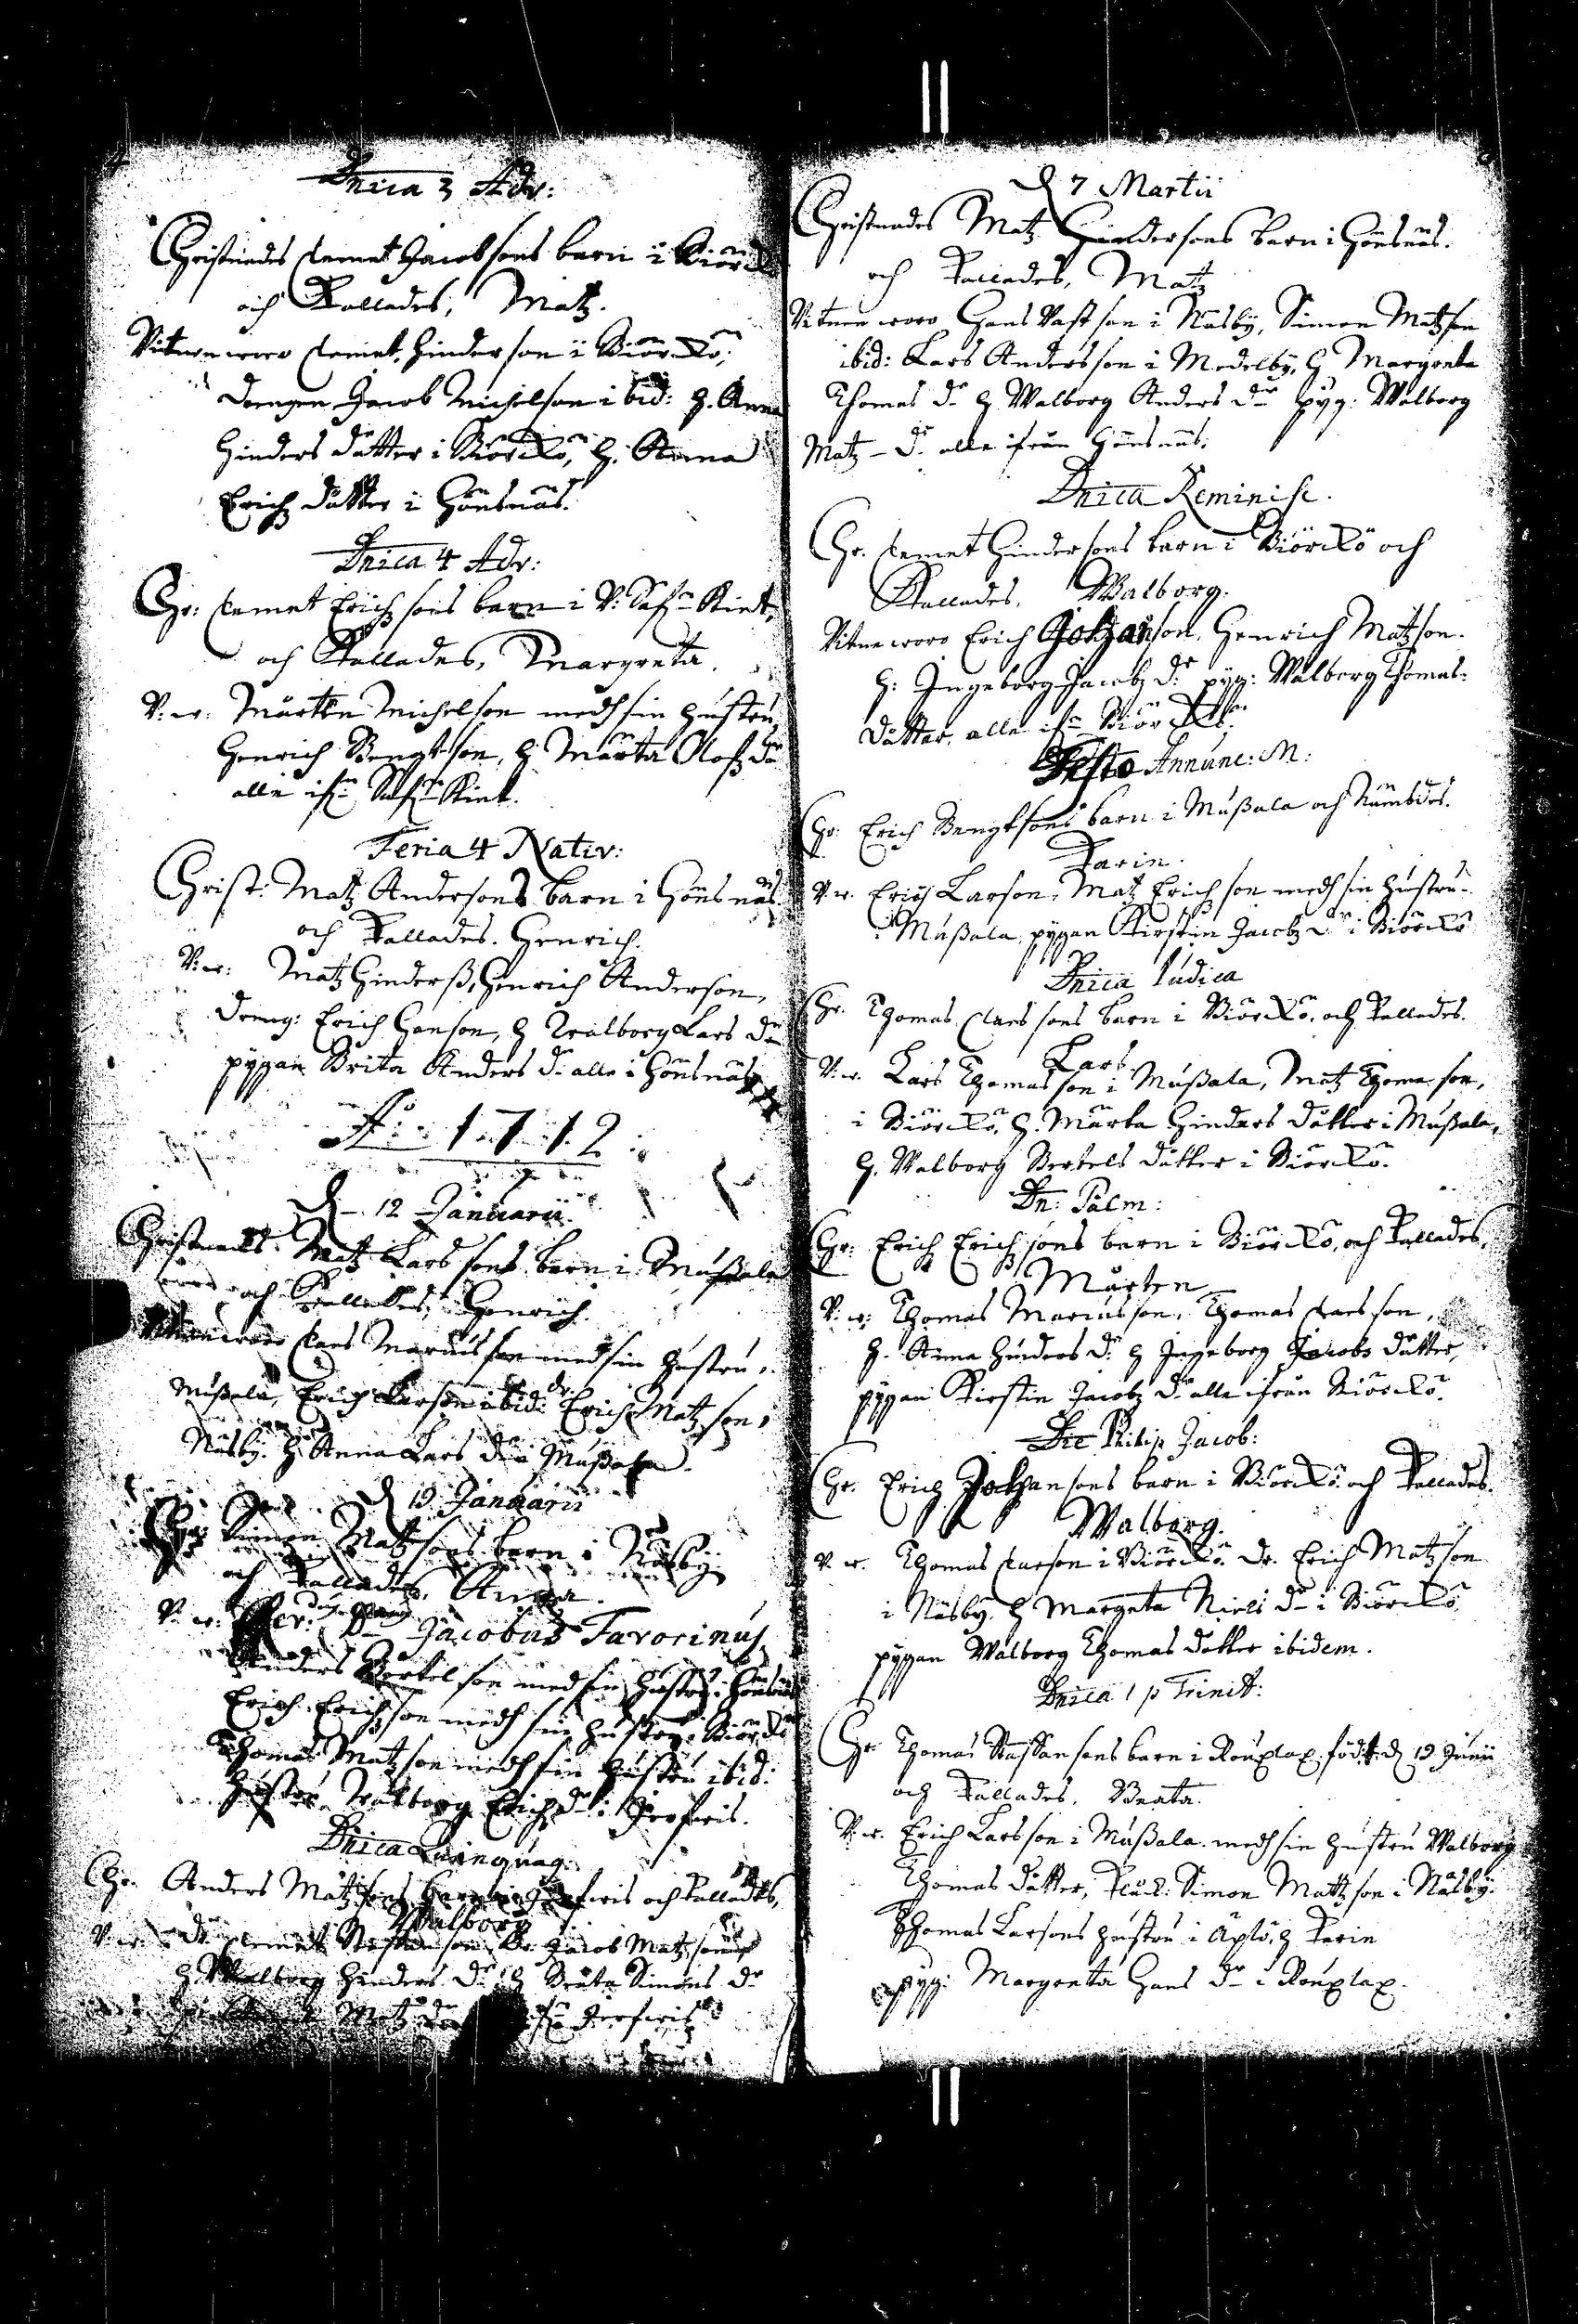 Dnica 3 Adv:
Christnades Clemet Jacobsons barn i Biörckö
och Kallades, Matz.
Vitnen woro Clemet Hinderson i Biörckö,
drengen Jacob Michelson ibid: H. Anna
Hinders dåtter i Biörckö, H. Anna
Erichz dåtter i Hönsnäs.
Dnica 4 Adv:
Chr: Clemet Erichsons barn i
och Kallades, Margreta.
V: w: Mårten Michelson medh sin hustru,
Henrich Bengtson, H Märta Olofz dr
alle ifr.
Feria 4 Nativ:
Christ: Matz Andersons barn i Hönsnäs
och Kallades. Henrich.
V: w: Matz Hinderß, Henrich Anderson,
Dreng: Erich Hanson, H Walborg Lars dr
pygan Brita Anders dr alle i Hönsnäs
A:o 1712
d 12 Januarii
Christnades Matz Larssons barn i Mußala
och Kallades, Henrich.
Vitnen woro Claes Mariusson med sin hustru
Mußala, Erich Larson ibid: dr Erich Matzson,
Näsby. H Anna Lars dr i Mußala.
d 19 Januarii
Chr: Simon Matsons barn i Näsby
och Kallades, Anna.
V: w: Jacobus Favorinus
Anders Bertelson med sin hustru i Hönsnäs
Erich Erichson medh sin hustru i Biörckö
Thomas Matzson medh sin hustru ibid:
hustru Walborg Erichz dr i
Dnica Quinquag.
Chr. Anders Matzsons barn i och Kallades,
Walborg
V: w: dr Clemet Staffanson, dr Jacob Matzson
H Walborg Hinders dr H Beata Simons dr
Matz dr
d 7 Martii
Christnades Matz Hindersons barn i Hönsnäs.
och Kallades, Matz
Vitnen woro Hans Mattson i Näsby, Simon Matzson
ibid: Lars Andersson i Medelby, H Margreta
Thomas dr H Walborg Anders dr pyg: Walborg
Matz dr alle ifrån Hönsnäs.
Dnica Reminisc.
Chr. Clemet Hindersons barn i Biörckö och
Kallades, Walborg.
Vitne woro Erich Johanson, Henrich Matzson.
H: Ingeborg Jacobz dr pyg: Walborg Thomas-
dåtter, alle ifr Biörckö.
Festo Annunc: M:
Chr: Erich Bengtsons barn i Mußala och nämbdes.
Karin.
V: w. Erich Larson, Matz Erichson medh sin hustru
i Mußala, pygan Kirstin Jacobz dr i Biörckö
Dnica Judica
Chr. Thomas Claessons barn i Biörckö, och Kallades.
Lars
V: w. Lars Thomasson i Mußala, Matz Thomeson,
i Biörckö, H. Märta Hinders dåtter i Mußala,
H. Walborg Bertels dåtter i Biörckö.
Dn: Palm:
Chr: Erich Erichsons barn i Biörckö, och Kallades,
Mårten
V: w: Thomas Mariusson, Thomas Claesson,
H. Anna Hinders dr H Ingeborg Jacobs dåtter,
pygan Kirstin Jacobz dr alle ifrån Biörckö.
Die Philip Jacob:
Chr. Erich Johansons barn i Biörckö och Kallades.
Walborg.
V. w. Thomas Clarson i Biörckö. dr. Erich Matzson
i Näsby, H Margeta Niels dr i Biörckö,
pygan Walborg Thomas dotter ibidem.
Dnica 1 p Trinit:
Chr Thomas Staffansons barn i Rouxlax, född d 19 Junii
och Kallades, Beata.
V: w. Erich Larsson i Mußala medh sin hustru Walborg
Thomas dåtter, Klåck: Simon Mattson i Näsby.
Thomas Larsons hustru i Äplö, H Karin
pyg: Margreta Hans dr i Rouxlax.